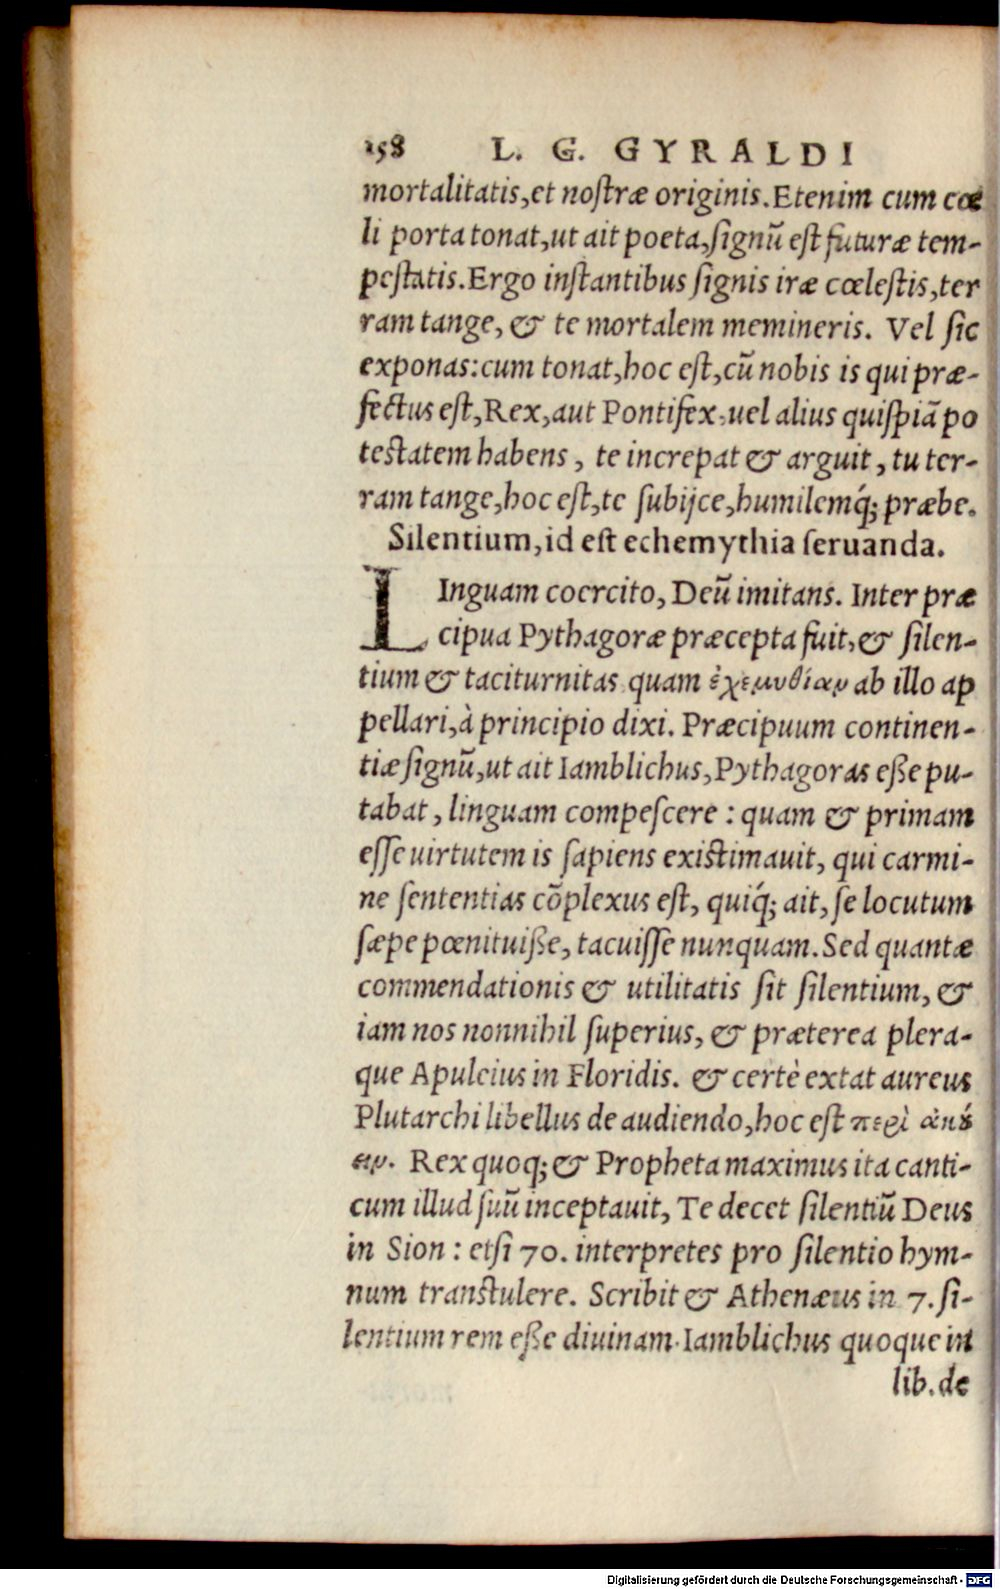 158 L. G. GYRALDI
mortalitatis, et nostræ originis. Etenim cum cœ
li porta tonat, ut ait poeta, signũ est futuræ tem-
pestatis. Ergo instantibus signis iræ cœlestis, ter
ram tange, & te mortalem memineris. Vel sic
exponas: cum tonat, hoc est, cũ nobis is qui præ-
fectus est, Rex, aut Pontifex, uel alius quispiã po
testatem habens, te increpat & arguit, tu ter-
ram tange, hoc est, te subijce, humilemq́; præbe.
Silentium, id est echemythia seruanda.
LInguam coercito, Deũ imitans. Inter præ
cipua Pythagoræ præcepta fuit, & silen-
tium & taciturnitas quam ἐχεμυθίαν ab illo ap
pellari, à principio dixi. Præcipuum continen-
tiæ signũ, ut ait Iamblichus, Pythagoras eße pu-
tabat, linguam compescere: quam & primam
esse uirtutem is sapiens existimauit, qui carmi-
ne sententias cõplexus est, quiq́; ait, se locutum
sæpe pœnituiße, tacuisse nunquam. Sed quantæ
commendationis & utilitatis sit silentium, &
iam nos nonnihil superius, & præterea plera-
que Apuleius in Floridis. & certè extat aureus
Plutarchi libellus de audiendo, hoc est περὶ ἀκȣ́
ειν. Rex quoq; & Propheta maximus ita canti-
cum illud suũ inceptauit, Te decet silentiũ Deus
in Sion: etsi 70. interpretes pro silentio hym-
num transtulere. Scribit & Athenæus in 7. si-
lentium rem eße diuinam. Iamblichus quoque in
lib. de
Digitalisierung gefördert durch die Deutsche Forschungsgemeinschaft - DFG